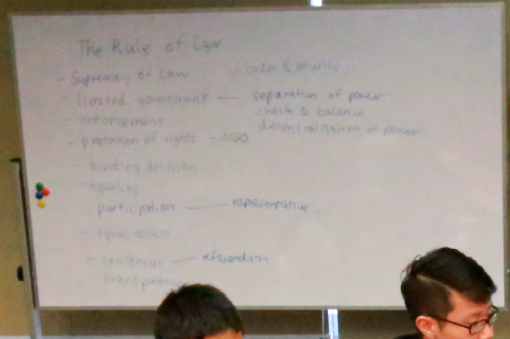 The Rule of Law
- Supremacy of Law - order & security
- limited government — separation of power
check & balance
- enforcement
decentralisation of power
- protection of rights - NGO
- binding decision
- equality
- participation — representative
- equal access
- consensus — referendum
- transparency